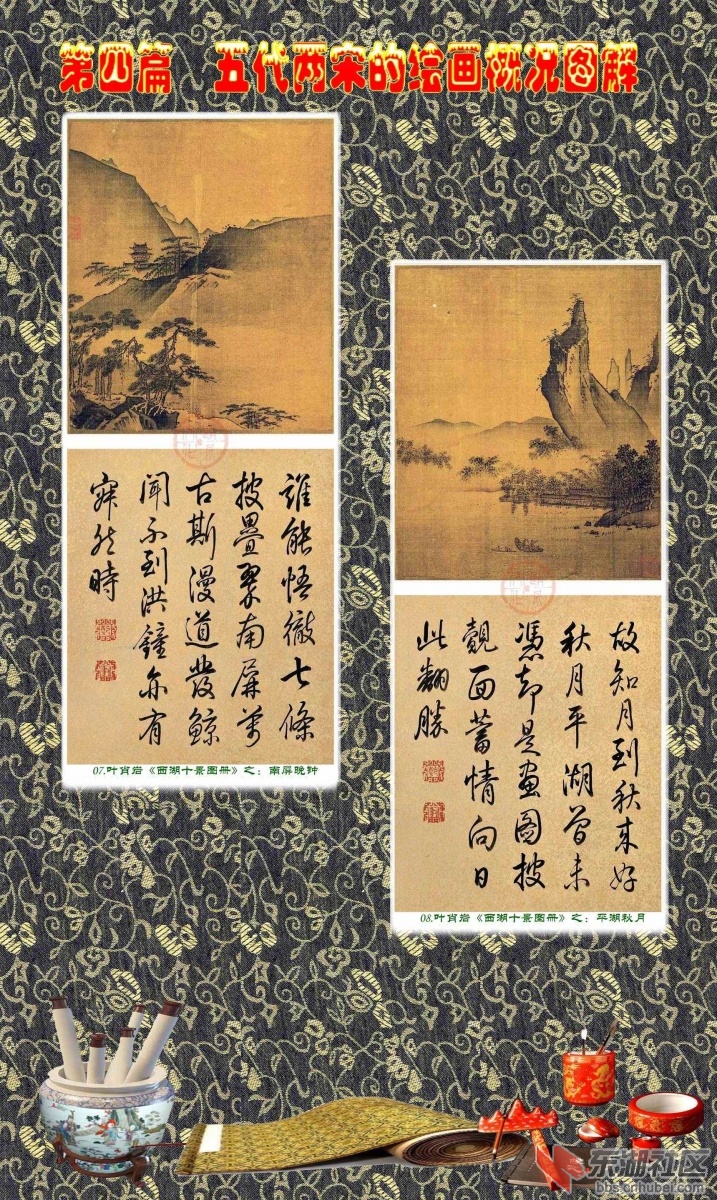 第四篇 五代两宋的绘画概况图解
誰能悟徹七條
披疊翠南屏萬
古斯漫道發鯨
聞不到洪鐘亦有
寂然時
07.叶肖岩《西湖十景图册》之：南屏晚钟
故知月到秋來好
秋月平湖曾未
憑却是畫圖披
覿面蓄情向日
此翻勝
08.叶肖岩《西湖十景图册》之：平湖秋月
东湖社区
bbs.cnhubei.com